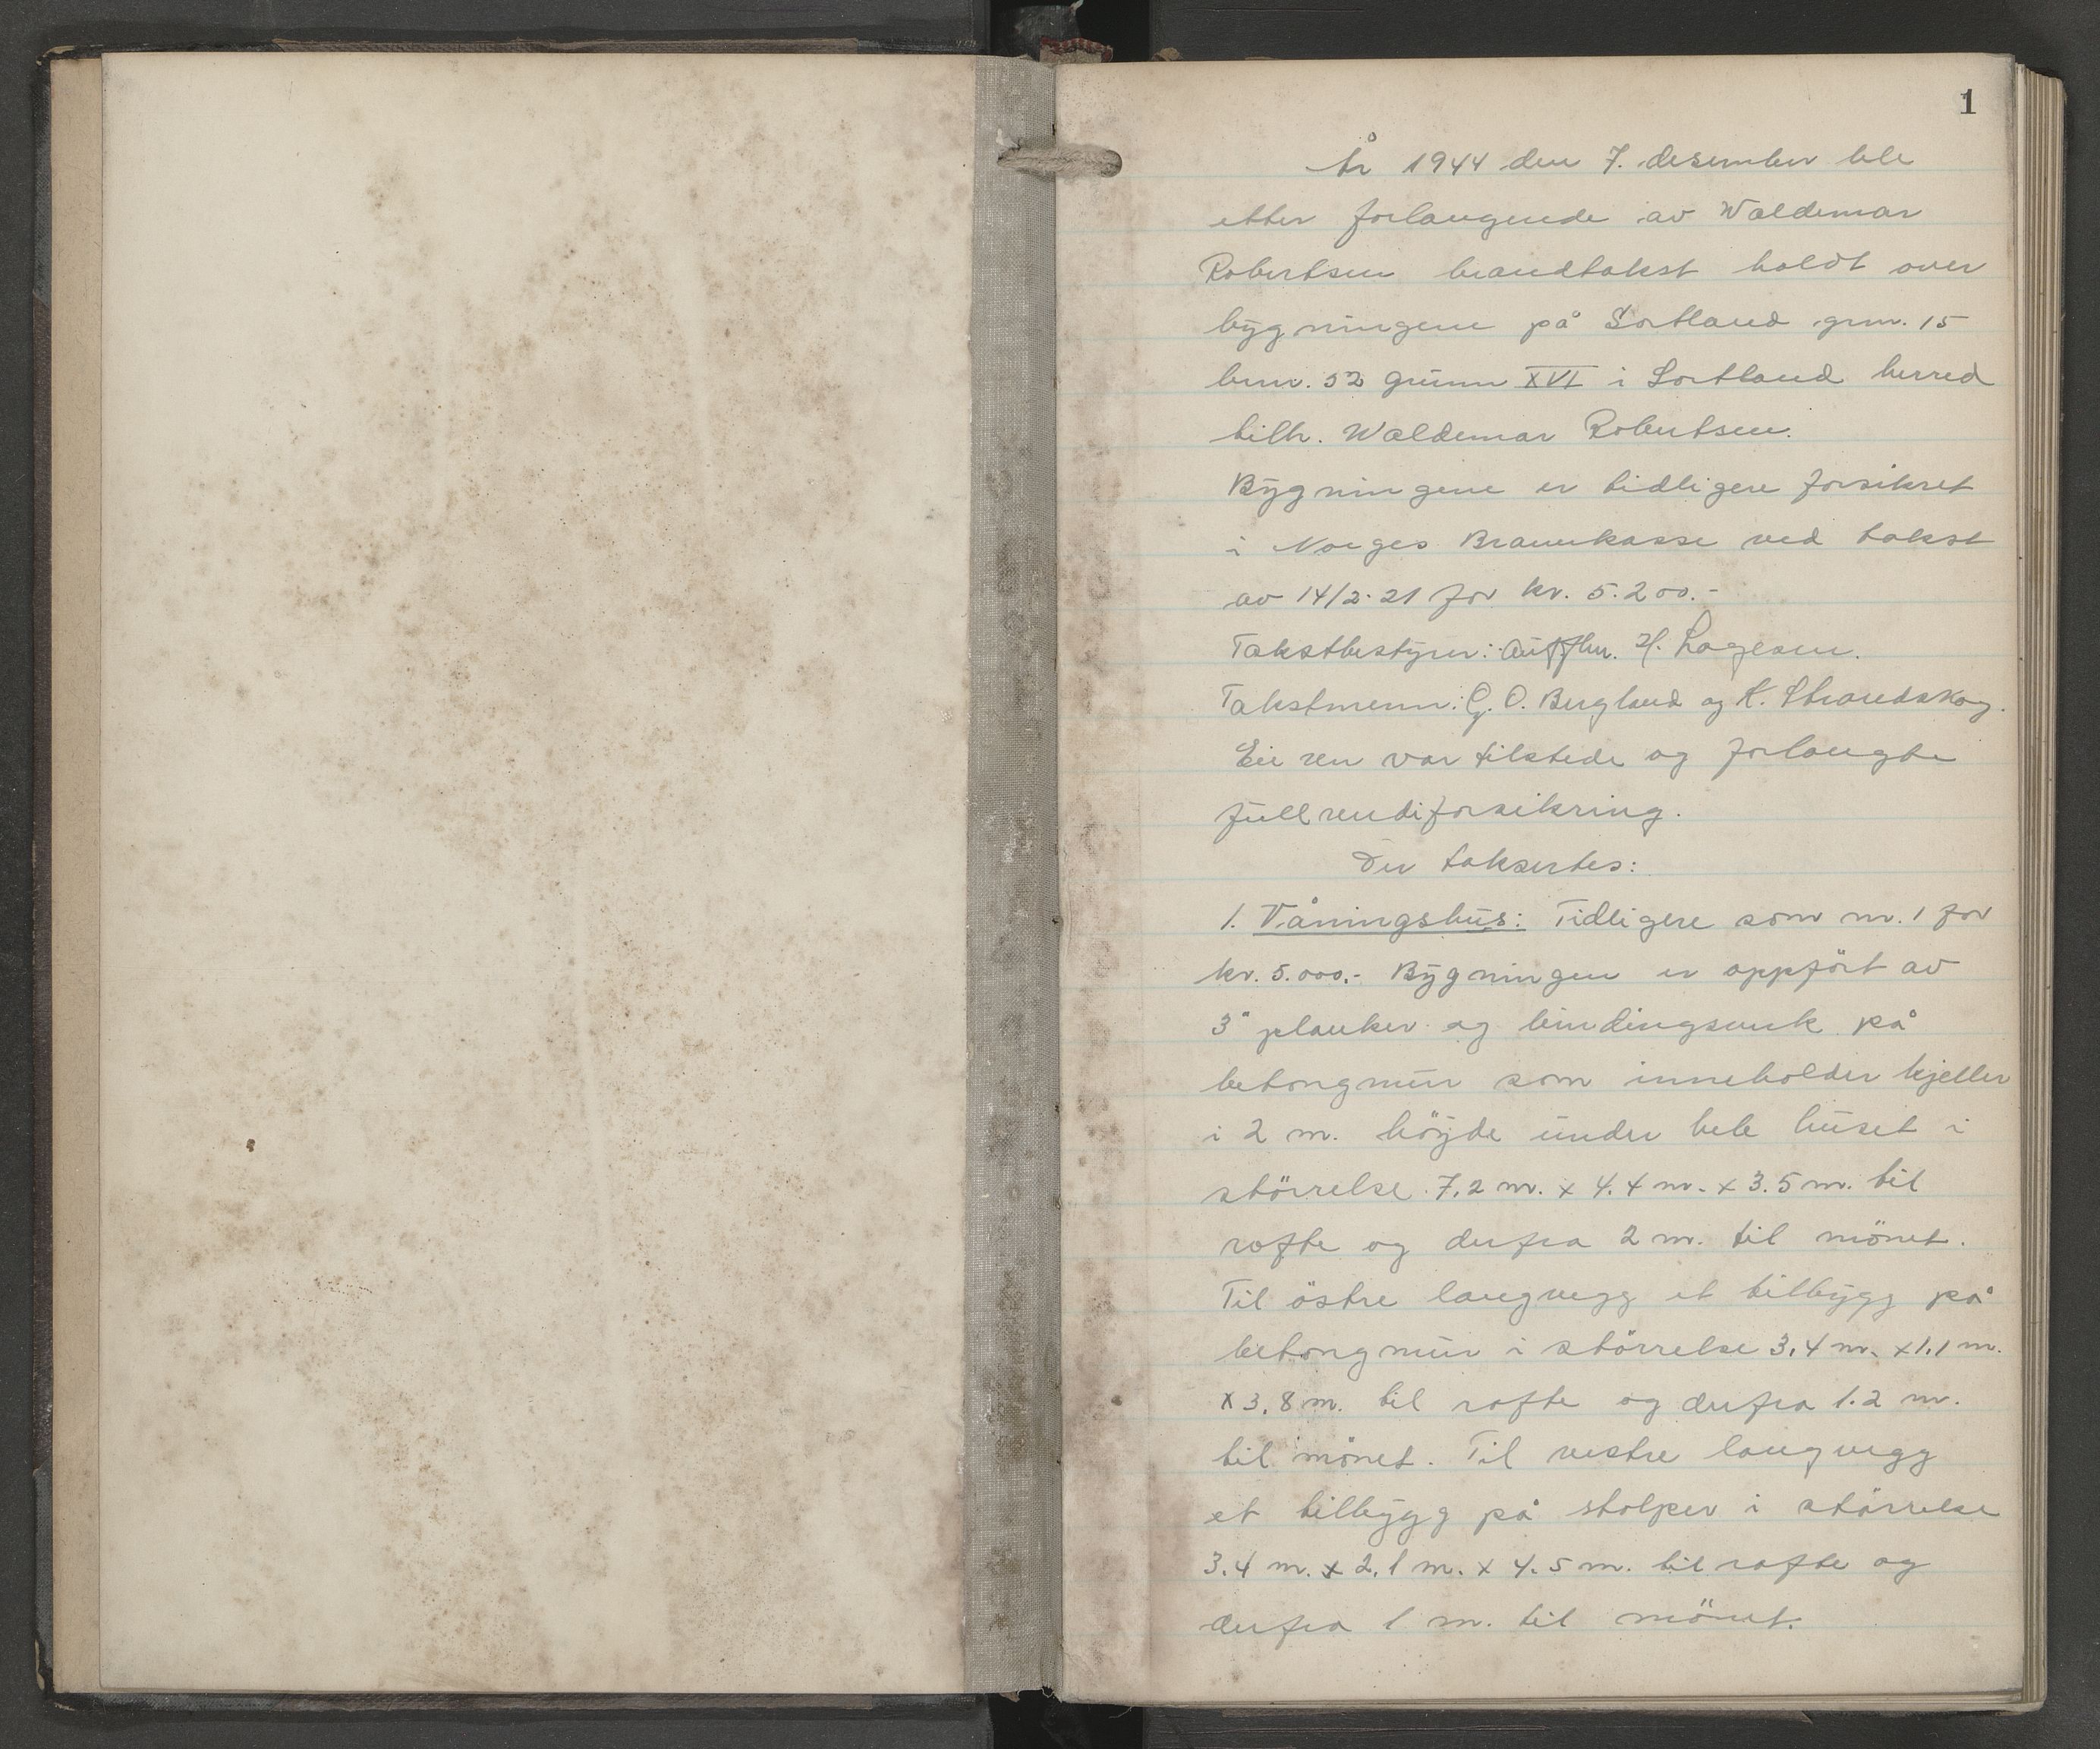 1
År 1944 den 7. desember ble
etter forlangende av Waldemar
Robertsen brandtakst holdt over
bygningene på Sortland gnr. 15
bnr. 52 grunn XVI i Sortland herred
tilh. Waldemar Robertsen.
Bygningene er tidligere forsikret
i Norges Brannkasse ved takst
av 14/2-21 for kr. 5.200.-
Takstbestyrer: H. Lagesen.
Takstmenn: G. O. Bergland og K. Strandskog.
Eieren var tilstede og forlangte
fullverdiforsikring.
Der taksertes:
1. Våningshus: Tidligere som nr. 1 for
kr. 5.000.- Bygningen er oppført av
3" planker og bindingsverk på
betongmur som inneholder kjeller
i 2 m. höyde under hele huset i
störrelse 7,2 m. x 4.4 m. x 3.5 m. til
rofte og derfra 2 m. til mönet.
Til östre langvegg et tilbygg på
betongmur i störrelse 3,4 m. x 1,1 m.
x 3,8 m. til rofte og derfra 1.2 m.
til mönet. Til vestre langvegg
et tilbygg på stolper i störrelse
3.4 m. x 2,1 m. x 4.5 m. til rofte og
derfra 1 m. til mönet.